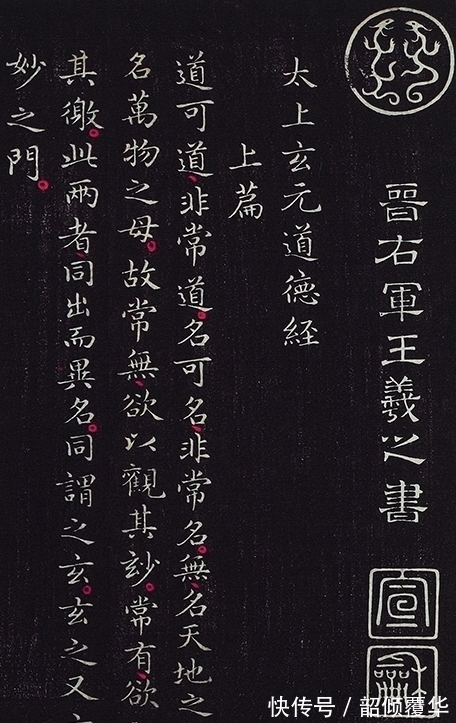 晉右軍王羲之書
宣
龢
太上玄元道德經
上篇
道可道、非常道。名可名、非常名。無、名天地之
名萬物之母。故常無、欲以觀其玅。常有、欲
其徼。此兩者、同出而異名。同謂之玄。玄之又
妙之門。
快传号/韶倾覆华